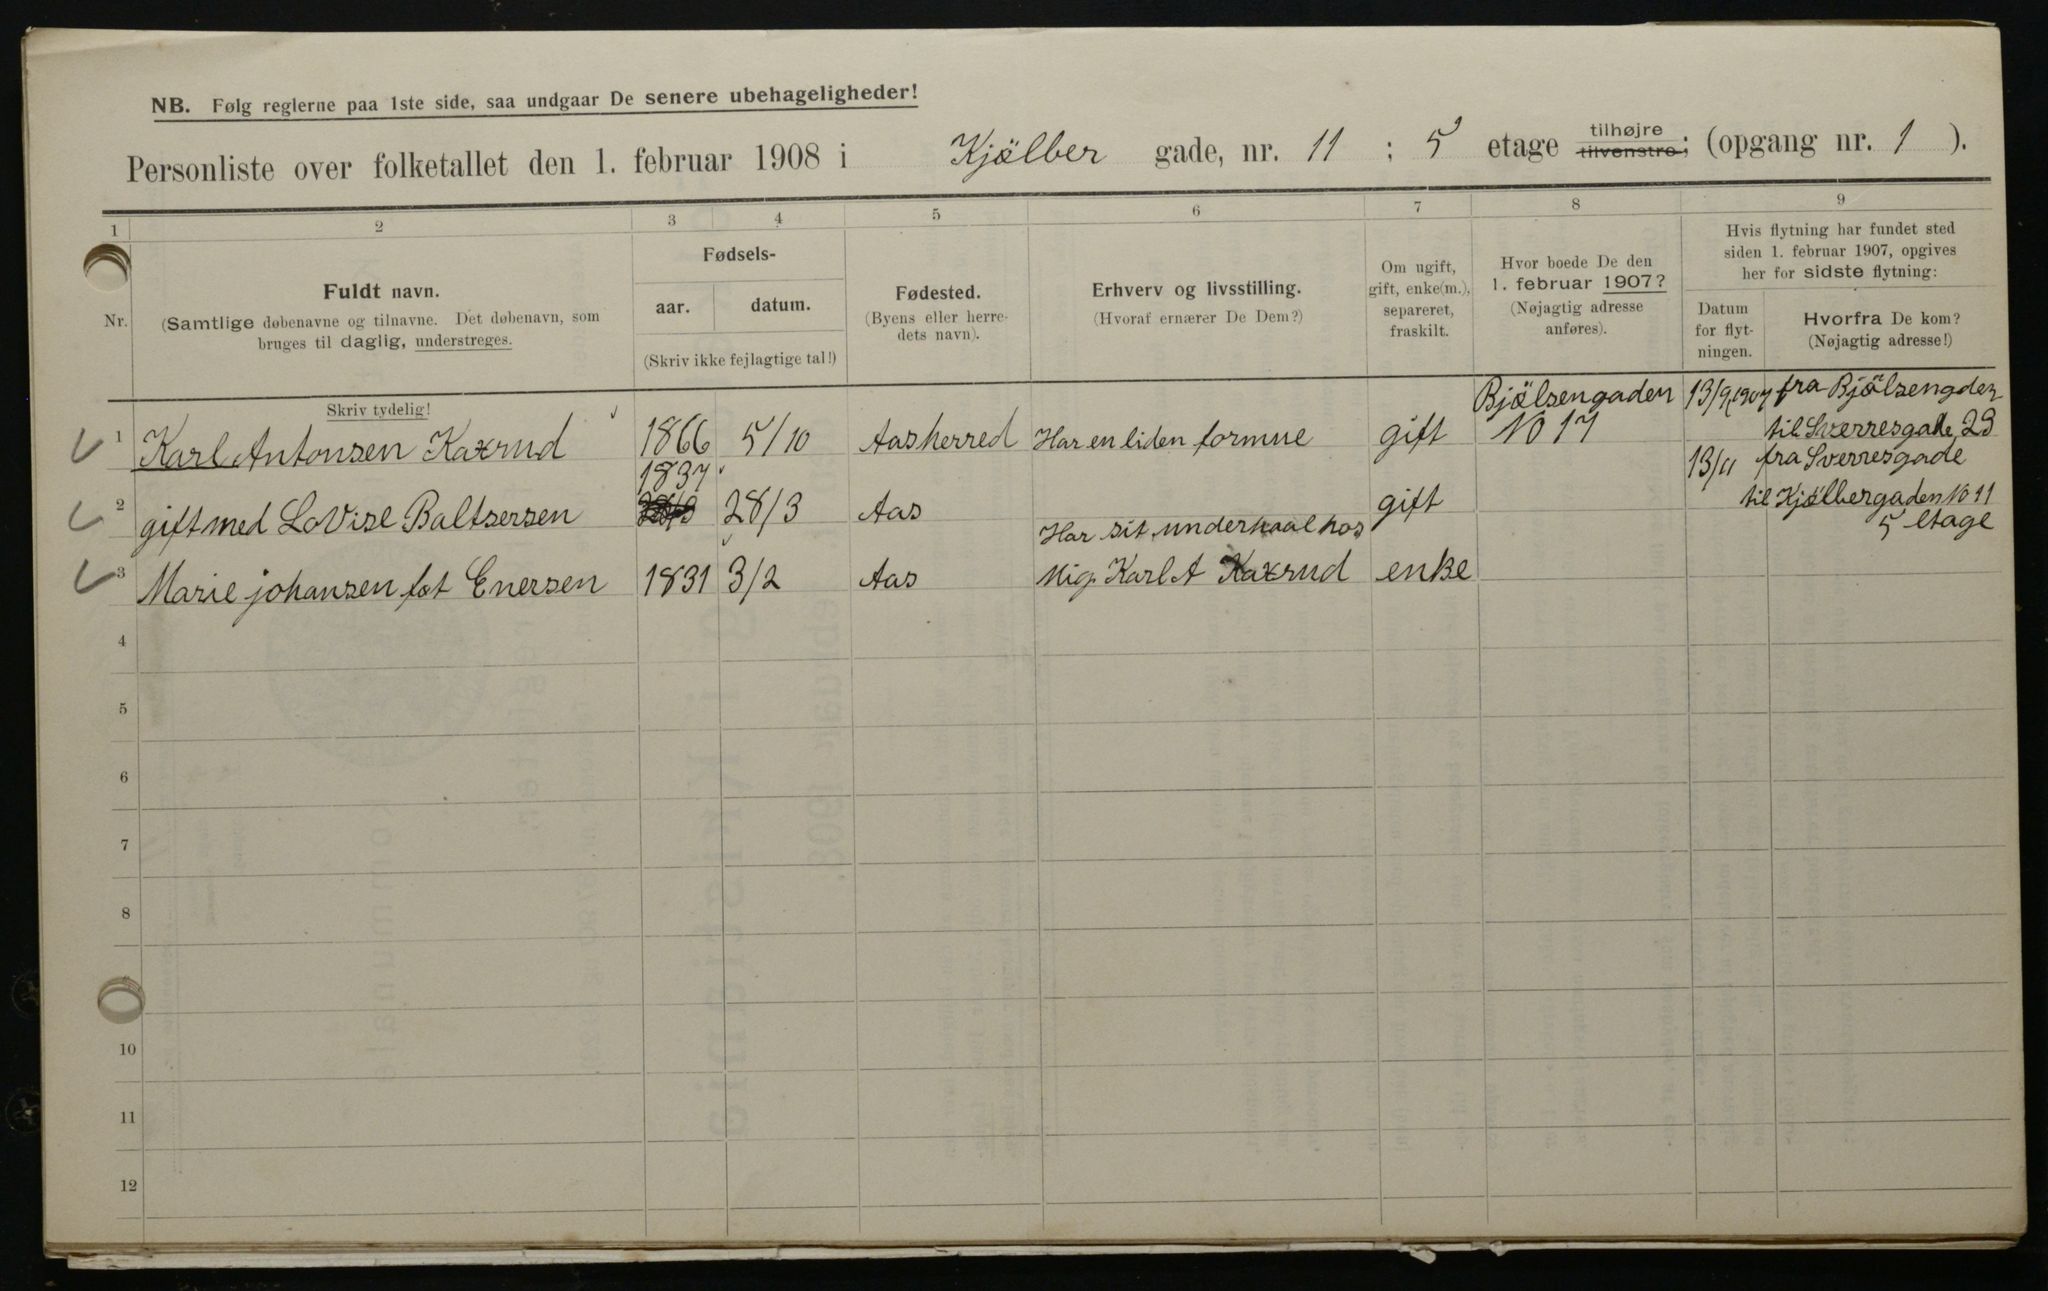 NB. Følg reglerne paa 1ste side, saa undgaar De senere ubehageligheder!
Personliste over folketallet den 1. februar 1908 i Kjölber gade, nr. 11 ; 5 etage tilhøjre tilvenstre; (opgang nr. 1 ).
1 2 3 4 5 6 7 8 9
Nr.
Fuldt navn.
(Samtlige døbenavne og tilnavne. Det døbenavn, som
bruges til daglig, understreges.
Skriv tydelig!
Fødsels-
aar. datum.
(Skriv ikke fejlagtige tal!)
Fødested.
(Byens eller herre-
dets navn).
Erhverv og livsstilling.
(Hvoraf ernærer De Dem?)
Om ugift,
gift, enke(m.),
separeret,
fraskilt.
Hvor boede De den
1. februar 1907?
(Nøjagtig adresse
anføres).
Hvis flytning har fundet sted
siden 1. februar 1907, opgives
her for sidste flytning:
Datum
for flyt-
ningen.
Hvorfra De kom?
(Nøjagtig adresse!)
Bjölsengaden 13/9 1907 fra Bjölsengden
1 Karl Antonsen Kaxrud 1866 5/10 Aasherred Har en liden formue gift No 17 til Sverresgade 23
1837 13/11 fra Sverresgade
2 gift med LoVise Baltsersen 28/3 Aas gift til Kjölbergaden No 11
Har sit underhaal hos 5 Etage
3 Marie johansen føt Enersen 1831 3/2 Aas Mig Karl A Kaxrud enke
4
5
6
7
8
10
11
12